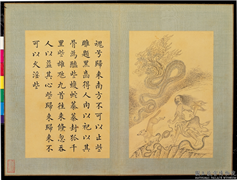 魂兮歸來南方不可以止些
雕題黑齒得人肉以祀以其
骨為醢些蝮蛇蓁蓁封狐千
里些雄虺九首往來儵忽吞
人以益其心些歸來歸來不
可以久淫些